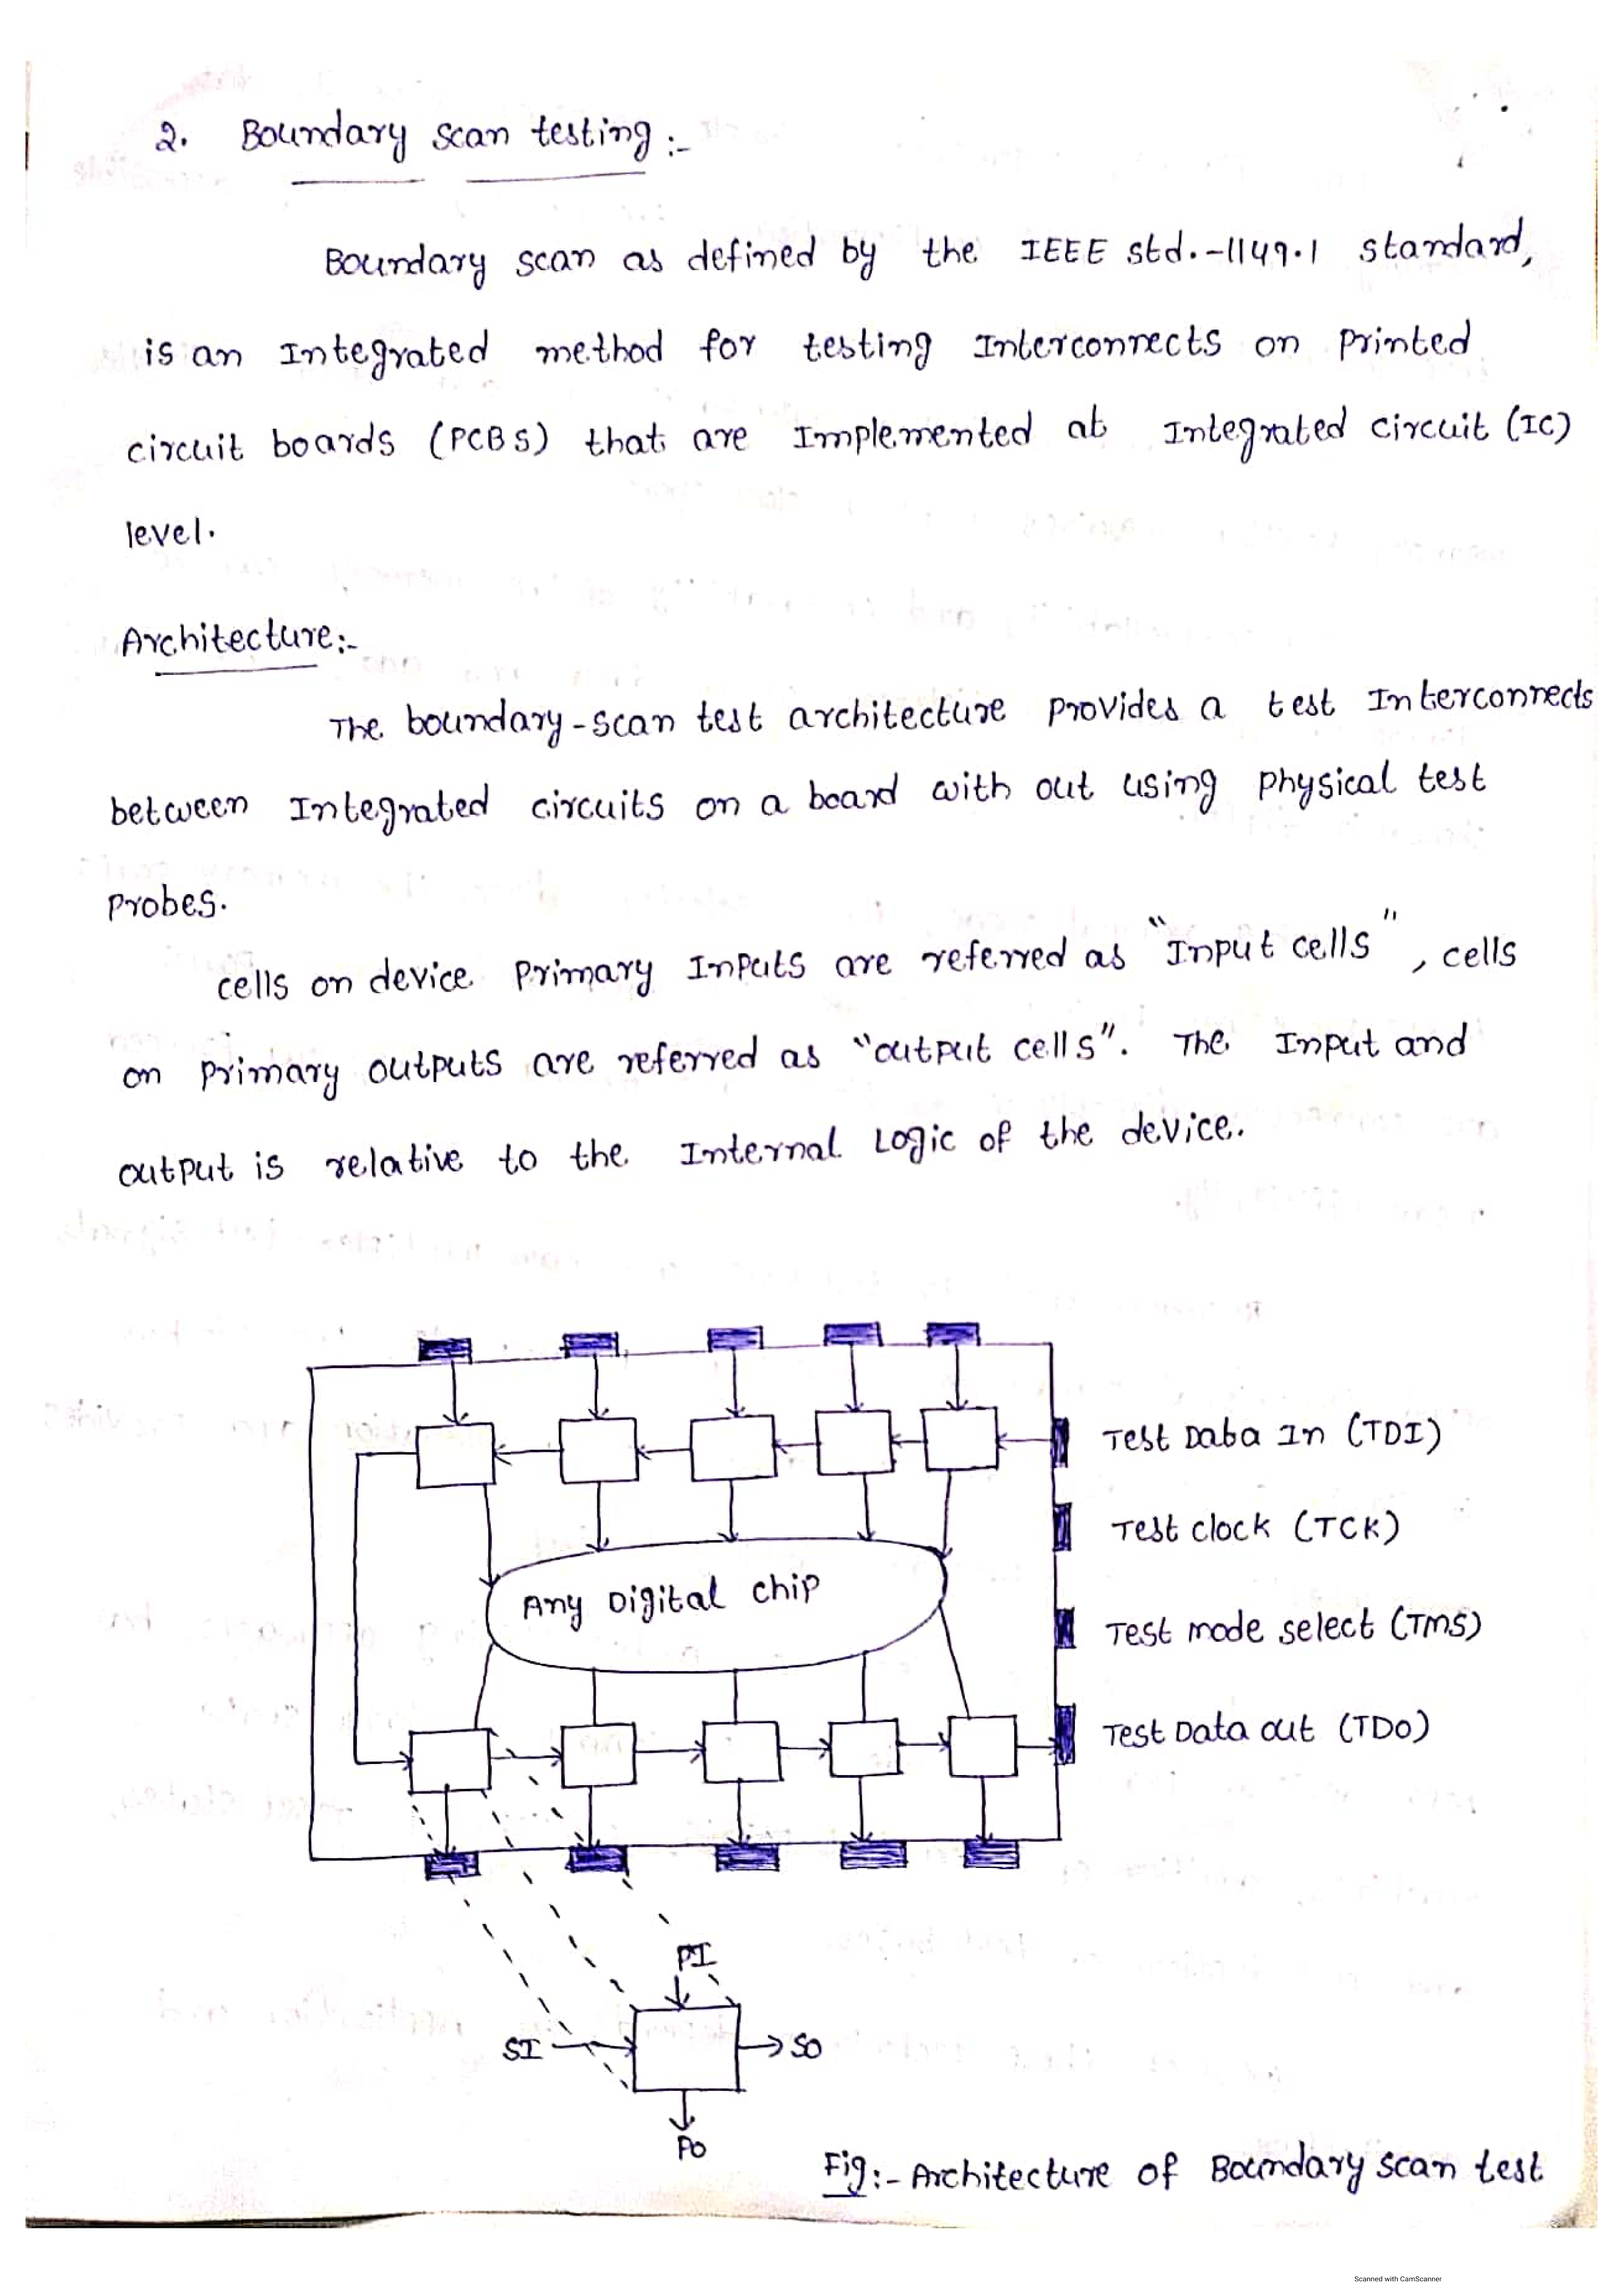 2. Boundary scan testing :-
Boundary scan as defined by the IEEE std.-1149.1 standard,
is an Integrated method for testing Interconnects on printed
circuit boards (PCBS) that are Implemented at Integrated circuit (IC)
level.
Architecture:-
The boundary-scan test architecture provides a test Interconnects
between Integrated circuits on a board with out using physical test
probes.
cells on device primary Inputs are referred as "Input cells", cells
on primary outputs are referred as "output cells". The Input and
output is relative to the Internal Logic of the device.
Test Data In (TDI)
Test clock (TCK)
Any Digital chip
Test mode select (TMS)
Test Data out (TDO)
PI
SI
SO
PO
Fig:- Architecture of Boundary scan test
Scanned with CamScanner